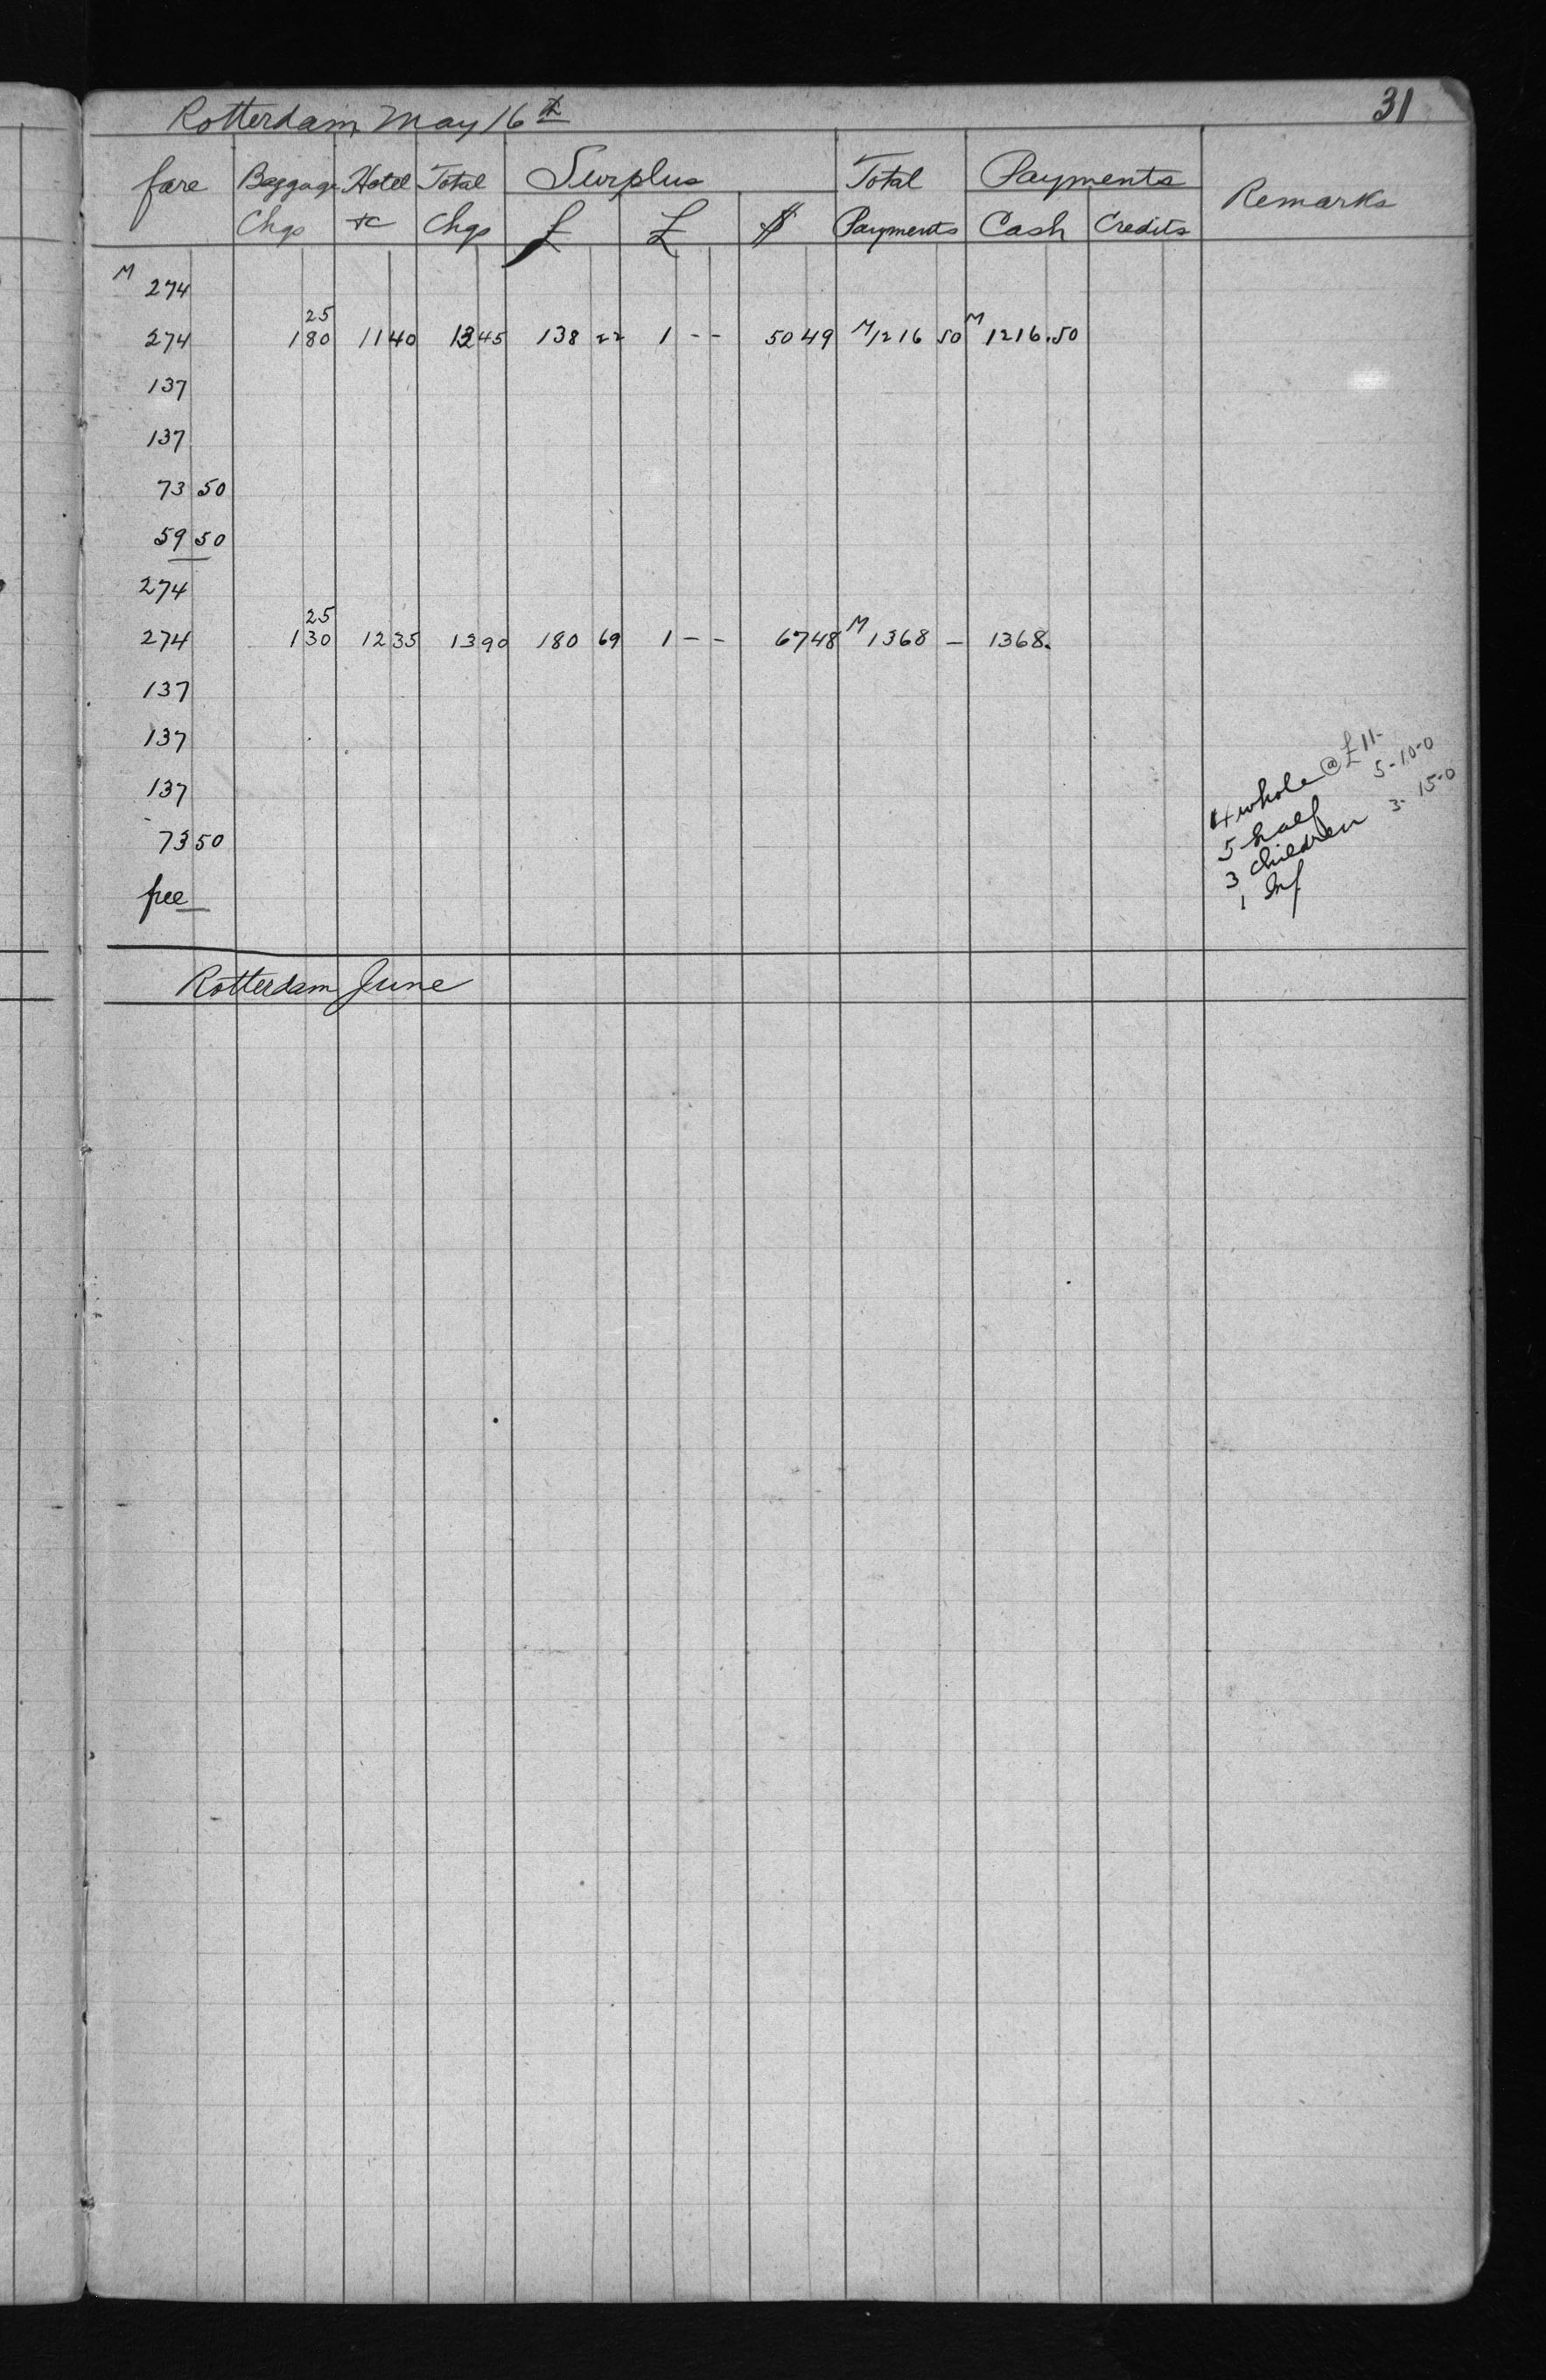 31
Rotterdam May 16th
fare Baggage Hotel Total Surplus Total Payments Remarks
Chgs &c Chgs £ £ $ Payments Cash Credits
M 274
25
274 180 11 40 13 45 138 22 1 - - 50 49 M 1216 50 M 1216.50
137
137
73 50
59 50
274
25
274 130 12 35 13 90 180 69 1 - - 67 48 M 1368 - 1368.
137
137
137
73 50
free
4 whole @ £11-
5 half 5-10-0
3 children 3-15-0
1 Inf
Rotterdam June